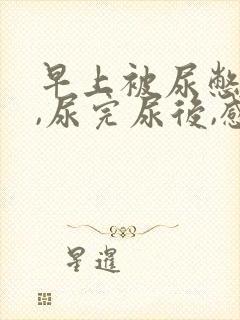 早上被尿憋
,尿完尿後,感
星暹